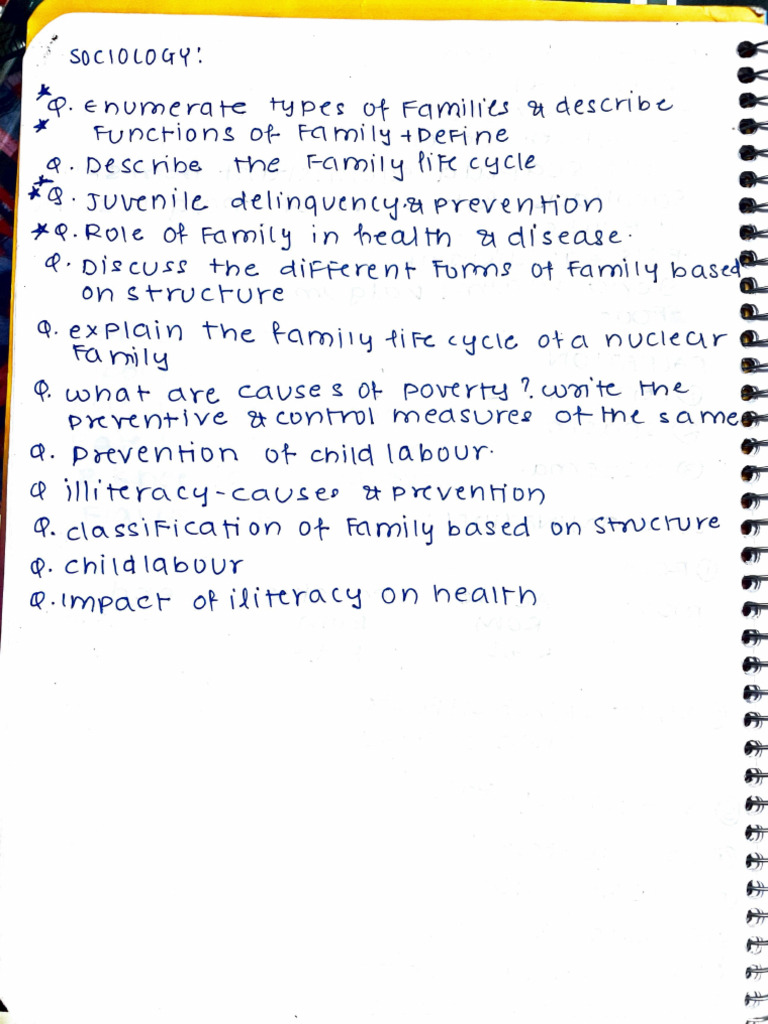 SOCIOLOGY:
* Q. Enumerate types of Families & describe
* Functions of Family + Define
Q. Describe the Family life cycle
** Q. Juvenile delinquency & prevention
* Q. Role of Family in health & disease.
Q. Discuss the different Forms of Family based
on structure
Q. explain the family life cycle of a nuclear
Family
Q. what are causes of poverty? write the
preventive & control measures of the same
Q. prevention of child labour.
Q illiteracy - causes & prevention
Q. classification of Family based on structure
Q. child labour
Q. impact of iliteracy on health